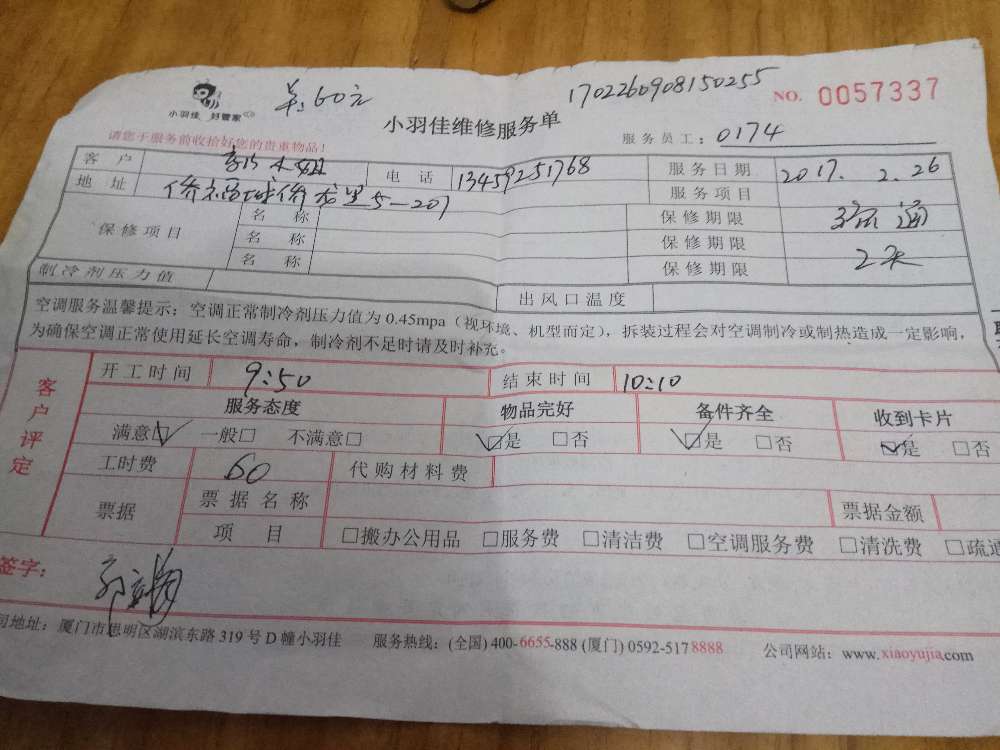 小羽佳 好管家
单:60元
1702260908150255
NO. 0057337
小羽佳维修服务单
请您于服务前收拾好您的贵重物品!
服务员工: 0174
客 户 小姐 电 话 13459251768 服务日期 2017. 2. 26
地 址 5-201 服务项目
保修项目 名 称 保修期限 通
名 称 保修期限
名 称 保修期限 2天
制冷剂压力值 出风口温度
空调服务温馨提示:空调正常制冷剂压力值为 0.45mpa(视环境、机型而定),拆装过程会对空调制冷或制热造成一定影响,
为确保空调正常使用延长空调寿命,制冷剂不足时请及时补充。
客户评定
开工时间 9:50 结束时间 10:10
服务态度 物品完好 备件齐全 收到卡片
满意☑ 一般□ 不满意□ ☑是 □否 ☑是 □否 ☑是 □否
工时费 60 代购材料费
票据 票据名称 票据金额
项 目 □搬办公用品 □服务费 □清洁费 □空调服务费 □清洗费 □疏通
签字:
司地址:厦门市思明区湖滨东路 319 号 D 幢小羽佳 服务热线:(全国) 400-6655-888 (厦门) 0592-517 8888 公司网站:www.xiaoyujia.com